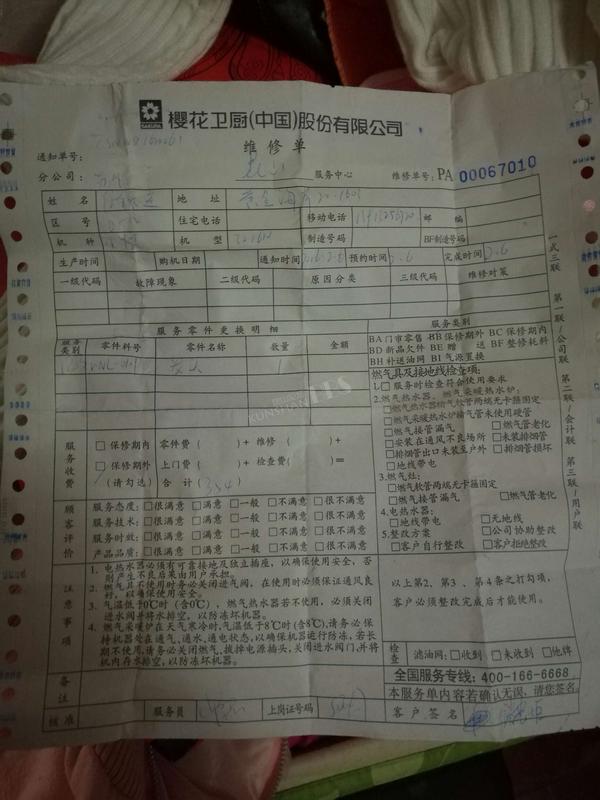 SAKURA 樱花卫厨(中国)股份有限公司
维修单
通知单号:
分公司: 昆山 服务中心 维修单号: PA 00067010
姓名 地址
区号 住宅电话 移动电话 邮编
机种 机型 制造号码 BF制造号码
生产时间 购机日期 通知时间 预约时间 完成时间
一级代码 故障现象 二级代码 原因分类 三级代码 维修对策
服务零件更换明细
服务类别 零件料号 零件名称 数量 金额
1
服务类别
BA门市零售 BB保修期外 BC保修期内
BD新品欠件 BE赠送 BF整修耗料
BH补送油网 BI气源置换
燃气具及接地线检查项:
1.□服务时检查符合使用要求
2.燃气热水器、燃气采暖热水炉:
□燃气热水器输气软管两端无卡箍固定
□燃气采暖热水炉输气管未使用硬管
□燃气接管漏气 □燃气管老化
□安装在通风不良场所 □未装排烟管
□排烟管出口未装至户外 □排烟管损坏
□地线带电
3.燃气灶:
□燃气软管两端无卡箍固定
□燃气接管漏气 □燃气管老化
4.电热水器:
□地线带电 □无地线
5.整改方案 □公司协助整改
□客户自行整改 □客户拒绝整改
KUNSHAN
服务收费
□保修期内 零件费( )+ 维修( )+
□保修期外 上门费( )+ 检查费( )=
(请勾选) 合计( 354 )
顾客评价
服务态度: □很满意 □满意 □一般 □不满意 □很不满意
服务技术: □很满意 □满意 □一般 □不满意 □很不满意
服务时效: □很满意 □满意 □一般 □不满意 □很不满意
产品品质: □很满意 □满意 □一般 □不满意 □很不满意
注意事项
1. 电热水器必须有可靠接地及独立插座,以确保使用安全,否
则产生不良后果由用户承担。
2. 燃气具不使用时务必关闭进气阀,在使用时必须保证通风良
好,以确保使用安全。
3. 气温低于0℃时(含0℃),燃气热水器若不使用,必须关闭
进水阀并将水排空,以防冻坏机器。
4. 燃气采暖炉在天气寒冷时,气温低于8℃时(含8℃),请务必保
持机器处在通气,通水,通电状态,以确保机器运行防冻,若长
期不使用,请务必关闭燃气,拔掉电源插头,关闭进水阀门,并将
机内存水排空,以防冻坏机器。
以上第2、第3、第4条之打勾项,
客户必须整改完成后才能使用。
检查 滤油网:□收到 □未收到 □他牌
备注
全国服务专线: 400-166-6668
本服务单内容若确认无误,请您签名
核准 服务员 上岗证号码 客户签名
一式三联 第一联/公司联 第二联/会计联 第三联/用户联